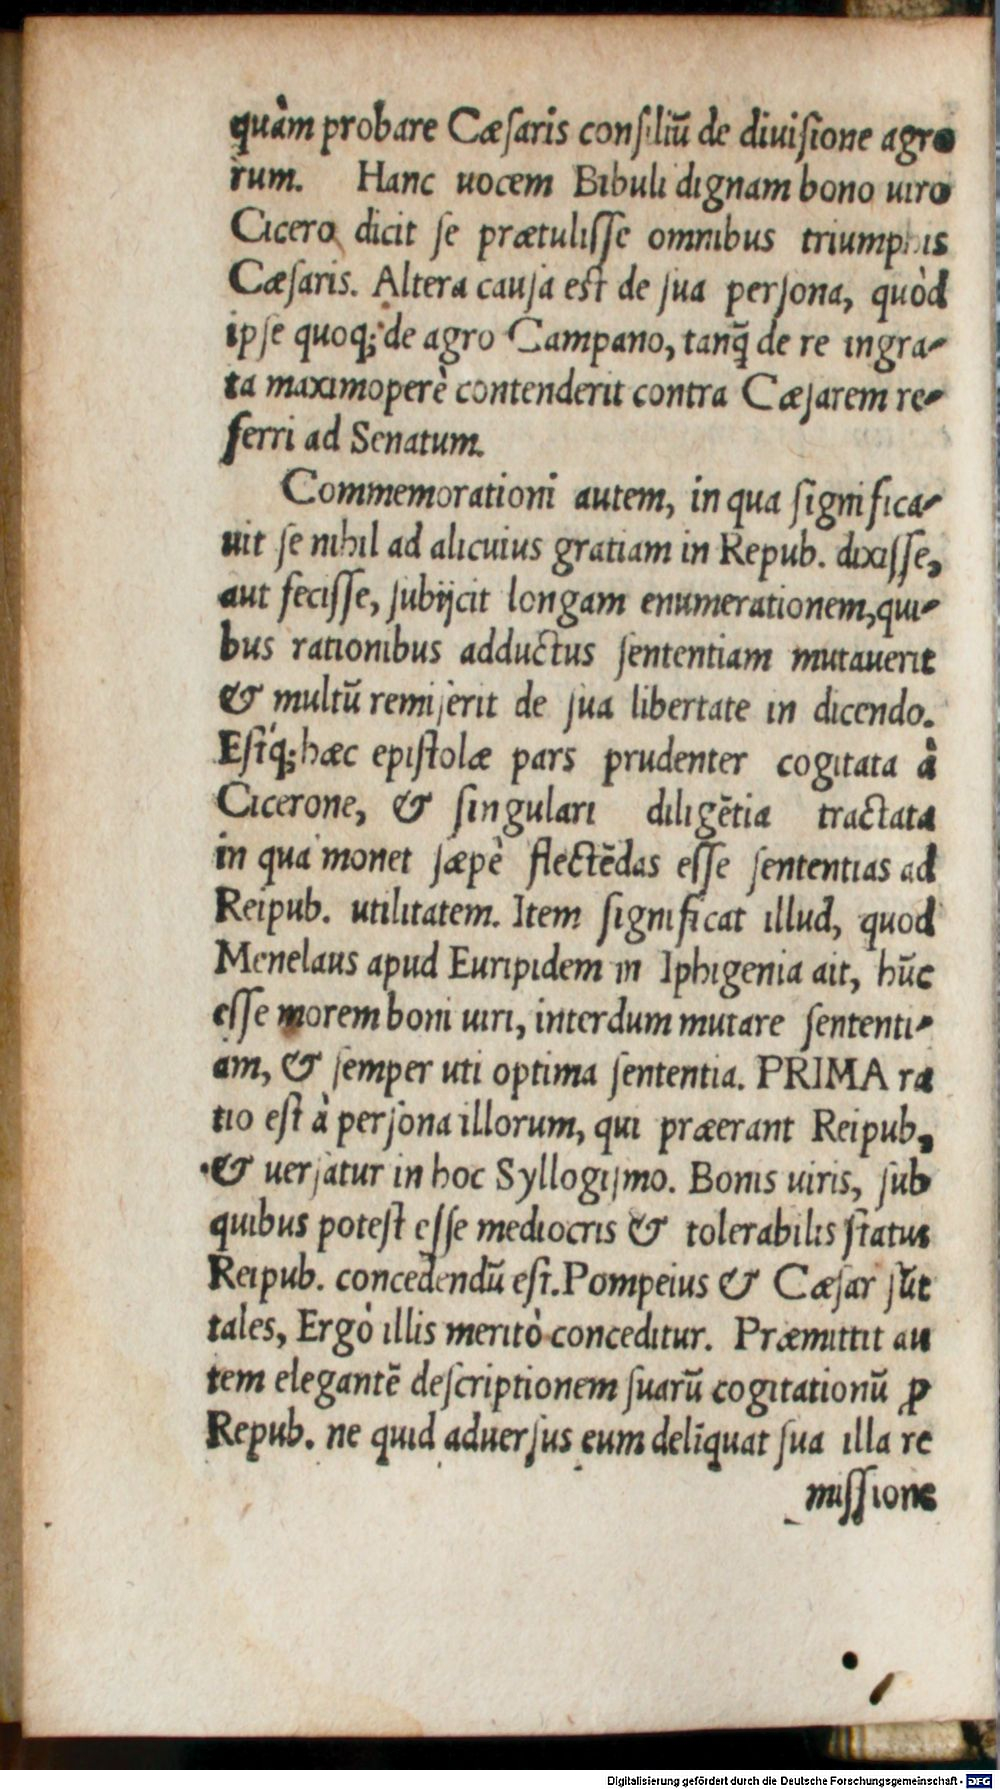 quàm probare Cæſaris conſiliū de diuiſione agro
rum. Hanc uocem Bibuli dignam bono uiro
Cicero dicit ſe prætuliſſe omnibus triumphis
Cæſaris. Altera cauſa eſt de ſua perſona, quòd
ipſe quoq; de agro Campano, tanq̄ de re ingra-
ta maximoperè contenderit contra Cæſarem re-
ferri ad Senatum.
Commemorationi autem, in qua ſignifica-
uit ſe nihil ad alicuius gratiam in Repub. dixiſſe,
aut feciſſe, ſubijcit longam enumerationem, qui-
bus rationibus adductus ſententiam mutauerit
& multū remiſerit de ſua libertate in dicendo.
Eſtq́; hæc epiſtolæ pars prudenter cogitata à
Cicerone, & ſingulari diligētia tractata
in qua monet ſæpè flectēdas eſſe ſententias ad
Reipub. utilitatem. Item ſignificat illud, quod
Menelaus apud Euripidem in Iphigenia ait, hūc
eſſe morem boni uiri, interdum mutare ſententi-
am, & ſemper uti optima ſententia. PRIMA ra
tio eſt à perſona illorum, qui præerant Reipub,
& uerſatur in hoc Syllogiſmo. Bonis uiris, ſub
quibus poteſt eſſe mediocris & tolerabilis ſtatus
Reipub. concedendū eſt. Pompeius & Cæſar ſūt
tales, Ergò illis meritò conceditur. Præmittit au
tem elegantē deſcriptionem ſuarū cogitationū ꝓ
Repub. ne quid aduerſus eum delīquat ſua illa re
miſſione
Digitalisierung gefördert durch die Deutsche Forschungsgemeinschaft - DFG